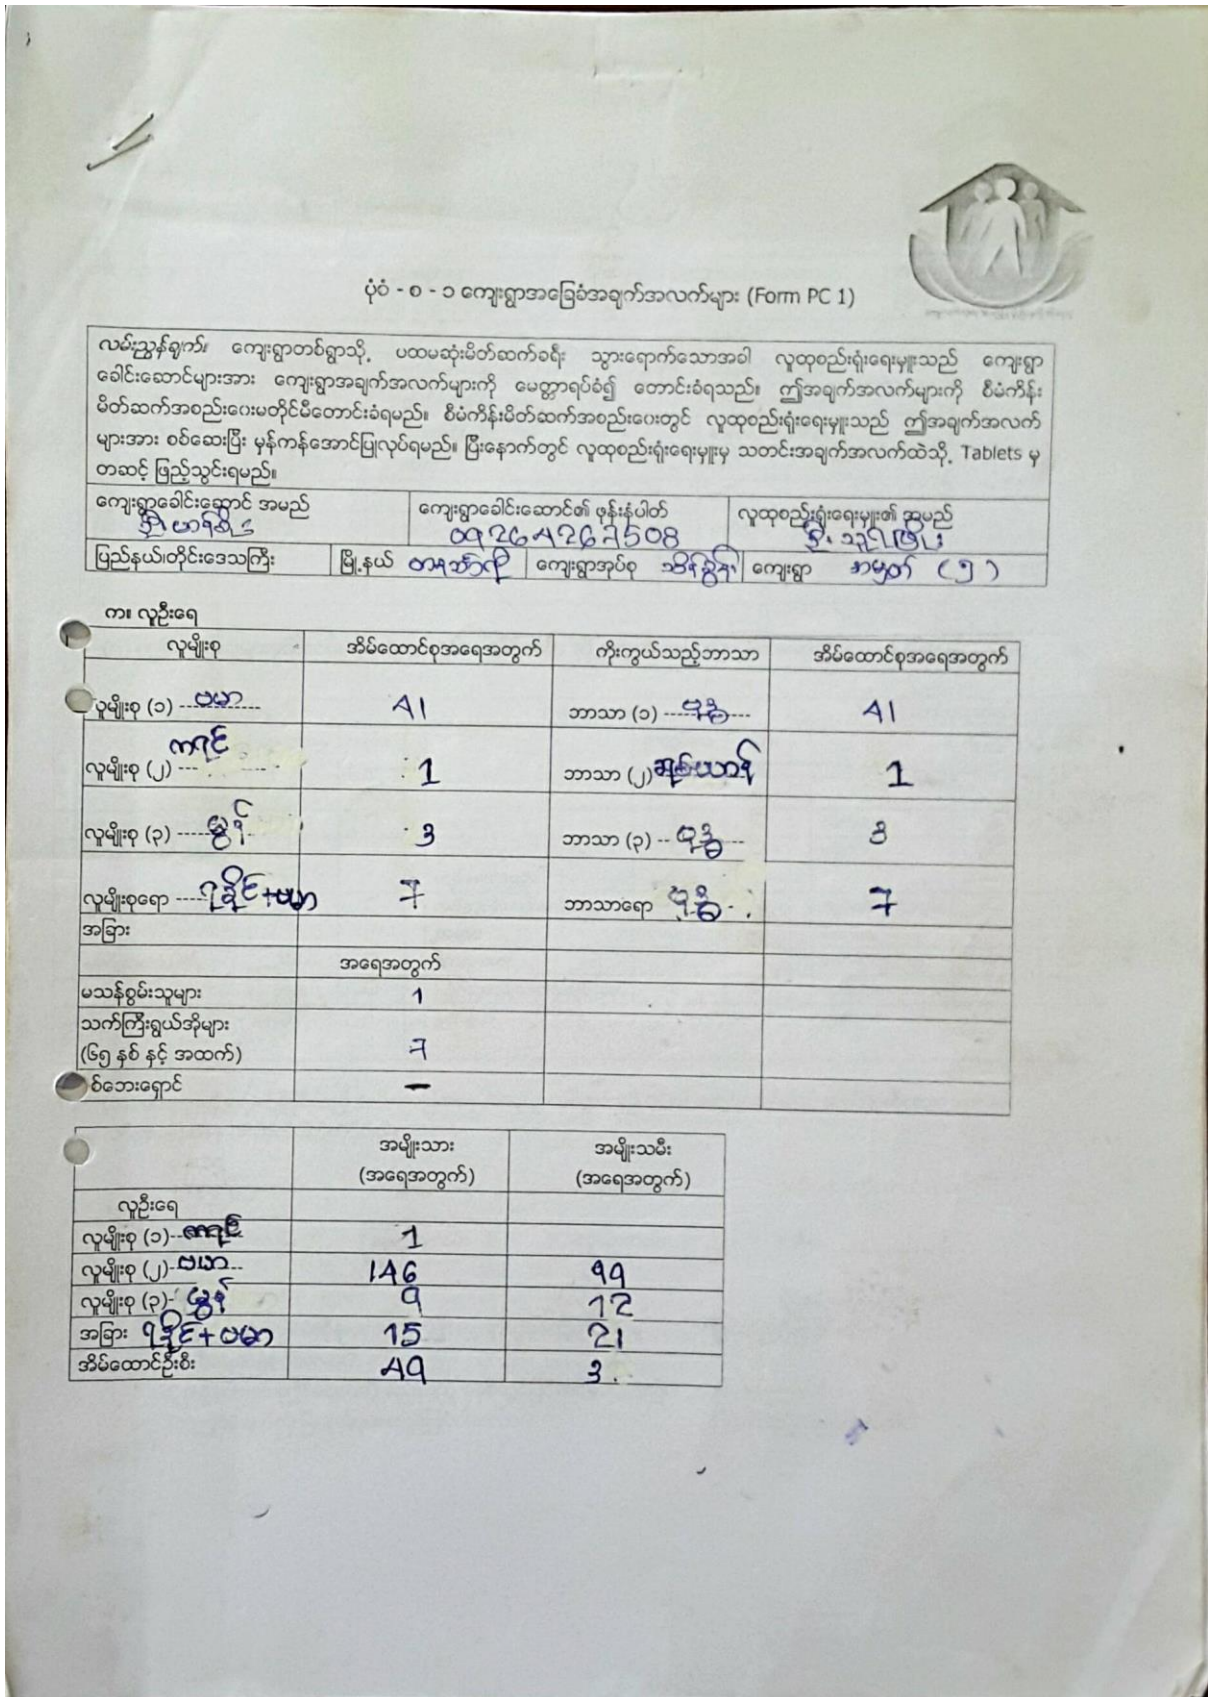 ပုံစံ - စ - ၁ ကျေးရွာအခြေခံအချက်အလက်များ (Form PC 1)
လမ်းညွှန်ချက်။ ကျေးရွာတစ်ရွာသို့ ပထမဆုံးမိတ်ဆက်ခရီး သွားရောက်သောအခါ လူထုစည်းရုံးရေးမှူးသည် ကျေးရွာ
ခေါင်းဆောင်များအား ကျေးရွာအချက်အလက်များကို မေတ္တာရပ်ခံ၍ တောင်းခံရသည်။ ဤအချက်အလက်များကို စီမံကိန်း
မိတ်ဆက်အစည်းဝေးမတိုင်မီတောင်းခံရမည်။ စီမံကိန်းမိတ်ဆက်အစည်းဝေးတွင် လူထုစည်းရုံးရေးမှူးသည် ဤအချက်အလက်
များအား စစ်ဆေးပြီး မှန်ကန်အောင်ပြုလုပ်ရမည်။ ပြီးနောက်တွင် လူထုစည်းရုံးရေးမှူးမှ သတင်းအချက်အလက်ထဲသို့ Tablets မှ
တဆင့် ဖြည့်သွင်းရမည်။
ကျေးရွာခေါင်းဆောင် အမည် ကျေးရွာခေါင်းဆောင်၏ ဖုန်းနံပါတ် လူထုစည်းရုံးရေးမှူး၏ အမည်
09264267508
ပြည်နယ်၊တိုင်းဒေသကြီး မြို့နယ် တနင်္သာရီ ကျေးရွာအုပ်စု သိန်ခွန်း ကျေးရွာ အမှတ် (၅)
က။ လူဦးရေ
လူမျိုးစု အိမ်ထောင်စုအရေအတွက် ကိုးကွယ်သည့်ဘာသာ အိမ်ထောင်စုအရေအတွက်
လူမျိုးစု (၁) ---ဗမာ--- 41 ဘာသာ (၁) ---ဗုဒ္ဓ--- 41
လူမျိုးစု (၂) --- ကရင် 1 ဘာသာ (၂) ခရစ်ယာန် 1
လူမျိုးစု (၃) ---မွန် 3 ဘာသာ (၃) -- ဗုဒ္ဓ --- 3
လူမျိုးစုရော ---ရခိုင်+ဗမာ 7 ဘာသာရော ဗုဒ္ဓ 7
အခြား
အရေအတွက်
မသန်စွမ်းသူများ 1
သက်ကြီးရွယ်အိုများ
(၆၅ နှစ် နှင့် အထက်) 7
စ်ဘေးရှောင် –
အမျိုးသား အမျိုးသမီး
(အရေအတွက်) (အရေအတွက်)
လူဦးရေ
လူမျိုးစု (၁)--ကရင် 1
လူမျိုးစု (၂)-ဗမာ-- 146 99
လူမျိုးစု (၃)- မွန် 9 12
အခြား ရခိုင်+ဗမာ 15 21
အိမ်ထောင်ဦးစီး 49 3